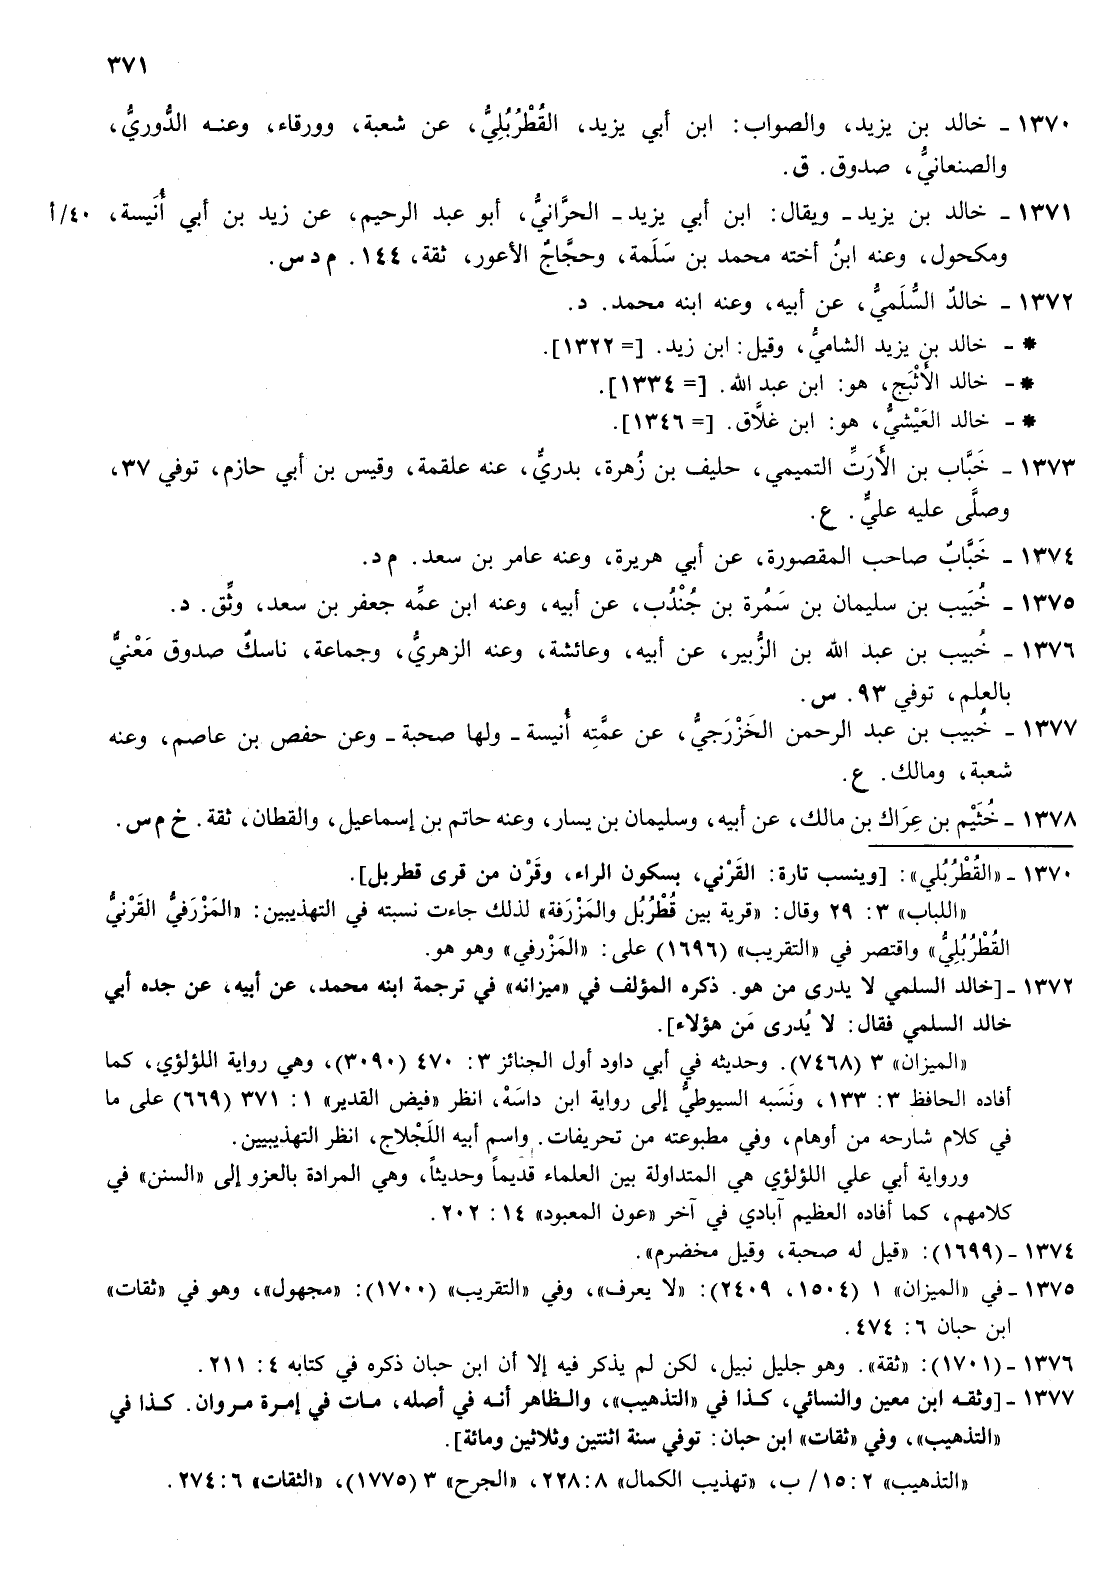 ٣٧١
١٣٧٠ ـ خالد بن يزيد، والصواب: ابن أبي يزيد، القُطْرُبُلِيُّ، عن شعبة، وورقاء، وعنه الدُّوريُّ،
والصنعانيُّ، صدوق. ق.
١٣٧١ ـ خالد بن يزيد ـ ويقال: ابن أبي يزيد ـ الحرَّانيُّ، أبو عبد الرحيم، عن زيد بن أبي أُنَيسة، ٤٠/أ
ومكحول، وعنه ابنُ أخته محمد بن سَلَمة، وحجَّاجٌ الأعور، ثقة، ١٤٤. م د س.
١٣٧٢ ـ خالدٌ السُّلَميُّ، عن أبيه، وعنه ابنه محمد. د.
* ـ خالد بن يزيد الشاميُّ، وقيل: ابن زيد. [= ١٣٢٢].
* ـ خالد الأَثْبَج، هو: ابن عبد الله. [= ١٣٣٤].
* ـ خالد العَيْشيُّ، هو: ابن غلاَّق. [= ١٣٤٦].
١٣٧٣ ـ خَبَّاب بن الأَرَتِّ التميمي، حليف بن زُهرة، بدريٌّ، عنه علقمة، وقيس بن أبي حازم، توفي ٣٧،
وصلَّى عليه عليٌّ. ع.
١٣٧٤ ـ خَبَّابٌ صاحب المقصورة، عن أبي هريرة، وعنه عامر بن سعد. م د.
١٣٧٥ ـ خُبَيب بن سليمان بن سَمُرة بن جُنْدُب، عن أبيه، وعنه ابن عمِّه جعفر بن سعد، وثِّق. د.
١٣٧٦ ـ خُبيب بن عبد الله بن الزُّبير، عن أبيه، وعائشة، وعنه الزهريُّ، وجماعة، ناسكٌ صدوق مَعْنيٌّ
بالعلم، توفي ٩٣. س.
١٣٧٧ ـ خُبيب بن عبد الرحمن الخَزْرَجيُّ، عن عمَّتِه أُنيسة ـ ولها صحبة ـ وعن حفص بن عاصم، وعنه
شعبة، ومالك. ع.
١٣٧٨ ـ خُثَيْم بن عِرَاك بن مالك، عن أبيه، وسليمان بن يسار، وعنه حاتم بن إسماعيل، والقطان، ثقة. خ م س.
١٣٧٠ ـ «القُطْرُبُلي»: [وينسب تارة: القَرْني، بسكون الراء، وقَرْن من قرى قطربل].
«اللباب» ٣: ٢٩ وقال: «قرية بين قُطْرُبُل والمَزْرَفة» لذلك جاءت نسبته في التهذيبين: «المَزْرَفيُّ القَرْنيُّ
القُطْرُبُلِيُّ» واقتصر في «التقريب» (١٦٩٦) على: «المَزْرفي» وهو هو.
١٣٧٢ ـ [خالد السلمي لا يدرى من هو. ذكره المؤلف في «ميزانه» في ترجمة ابنه محمد، عن أبيه، عن جده أبي
خالد السلمي فقال: لا يُدرى مَن هؤلاء].
«الميزان» ٣ (٧٤٦٨). وحديثه في أبي داود أول الجنائز ٣: ٤٧٠ (٣٠٩٠)، وهي رواية اللؤلؤي، كما
أفاده الحافظ ٣: ١٣٣، ونَسَبه السيوطيُّ إلى رواية ابن داسَةْ، انظر «فيض القدير» ١: ٣٧١ (٦٦٩) على ما
في كلام شارحه من أوهام، وفي مطبوعته من تحريفات. واسم أبيه اللَّجْلاج، انظر التهذيبين.
ورواية أبي علي اللؤلؤي هي المتداولة بين العلماء قديماً وحديثاً، وهي المرادة بالعزو إلى «السنن» في
كلامهم، كما أفاده العظيم آبادي في آخر «عون المعبود» ١٤: ٢٠٢.
١٣٧٤ ـ (١٦٩٩): «قيل له صحبة، وقيل مخضرم».
١٣٧٥ ـ في «الميزان» ١ (١٥٠٤، ٢٤٠٩): «لا يعرف»، وفي «التقريب» (١٧٠٠): «مجهول»، وهو في «ثقات»
ابن حبان ٦: ٤٧٤.
١٣٧٦ ـ (١٧٠١): «ثقة». وهو جليل نبيل، لكن لم يذكر فيه إلا أن ابن حبان ذكره في كتابه ٤: ٢١١.
١٣٧٧ ـ [وثقه ابن معين والنسائي، كذا في «التذهيب»، والظاهر أنه في أصله، مات في إمرة مروان. كذا في
«التذهيب»، وفي «ثقات» ابن حبان: توفي سنة اثنتين وثلاثين ومائة].
«التذهيب» ١٥:٢/ ب، «تهذيب الكمال» ٢٢٨:٨، «الجرح» ٣ (١٧٧٥)، «الثقات» ٢٧٤:٦.